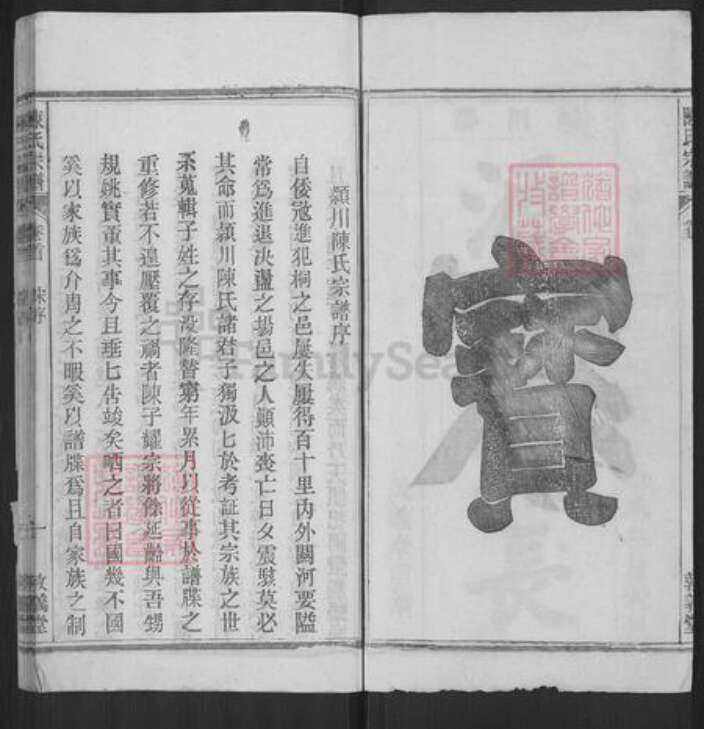 寶
潁川陳氏宗譜序
自倭寇進犯桐之邑屢失屢得百十里內外關河要隘
常爲進退決盪之場邑之人顚沛喪亡日夕震駭莫必
其命而潁川陳氏諸君子獨汲汲於考証其宗族之世
系蒐輯子姓之存沒隆替窮年累月以從事於譜牒之
重修若不遑壓覆之禍者陳子耀宗將餘延齡與吾甥
規姚實董其事今且垂七告竣矣哂之者曰國幾不國
奚以家族爲介胄之不暇奚以譜牒爲且自家族之制
陳氏宗譜
卷首
敦義堂
FamilySearch